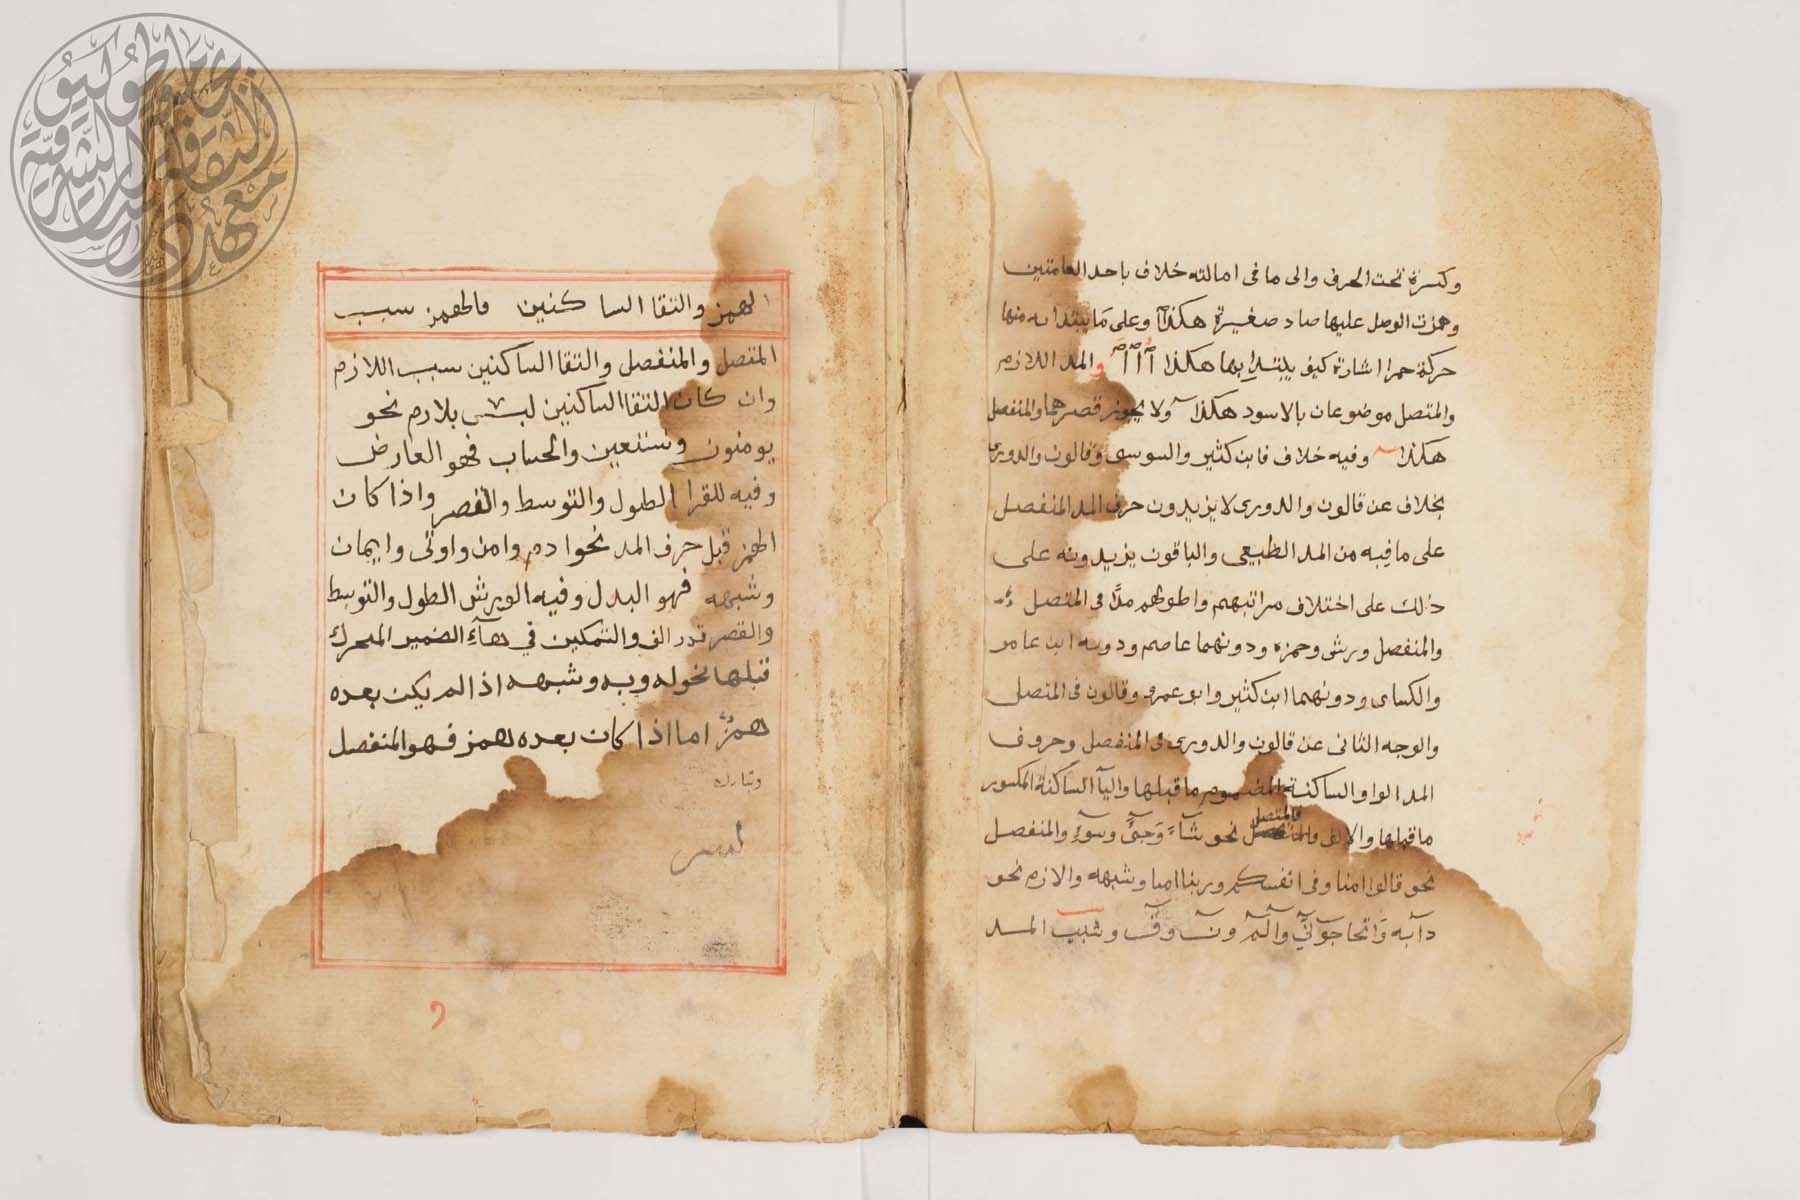 وكسرة تحت الحرف والى ما فى امالته خلاف باحد العلامتين
وهمزت الوصل عليها صاد صغيرة هكذا آ وعلى ما يبتدا به منها
حركة حمرا اشارة كيف يبتدا بها هكذا اُ اَ اِ والمد اللازم
والمتصل موضوعان بالاسود هكذا ٓ ولا يجوز قصرهما والمنفصل
هكذا ٓ وفيه خلاف فابن كثير والسوسى وقالون والدورى
بخلاف عن قالون والدورى لا يزيدون حرف المد المنفصل
على ما فيه من المد الطبيعى والباقون يزيدونه على
ذلك على اختلاف مراتبهم واطولهم مدّا فى المتصل
والمنفصل ورش وحمزه ودونهما عاصم ودونه ابن عامر
والكساى ودونهما ابن كثير وابو عمرو وقالون فى المتصل
والوجه الثانى عن قالون والدورى فى المنفصل وحروف
المد الواو الساكنة المضموم ما قبلها واليا الساكنة المكسور
ما قبلها والالف فالمتصل نحو شآءَ وَجىٓءَ وسوٓء والمنفصل
نحو قالوا امنا وفى انفسكم وربنا امنا وشبهه والازم نحو
دآبه وَاتحاجوٓنّى والٓمٓ ونٓ وقٓ وسبب المد
الهمز والتقا الساكنين فالهمز سبب
المتصل والمنفصل والتقا الساكنين سبب اللازم
وان كان التقا الساكنين ليس بلازم نحو
يومنون ونستعين والحساب فهو العارض
وفيه للقرا الطول والتوسط والقصر واذا كان
الهمز قبل حرف المد نحو ادم وامن واوتى وايمان
وشبهه فهو البدل وفيه لورش الطول والتوسط
والقصر قدر الف والتمكين في هآءِ الضمير المتحرك
قبلها نحو له وبه وشبهه اذا لم يكن بعده
همزٌ اما اذا كان بعده همز فهو المنفصل
وتبارك